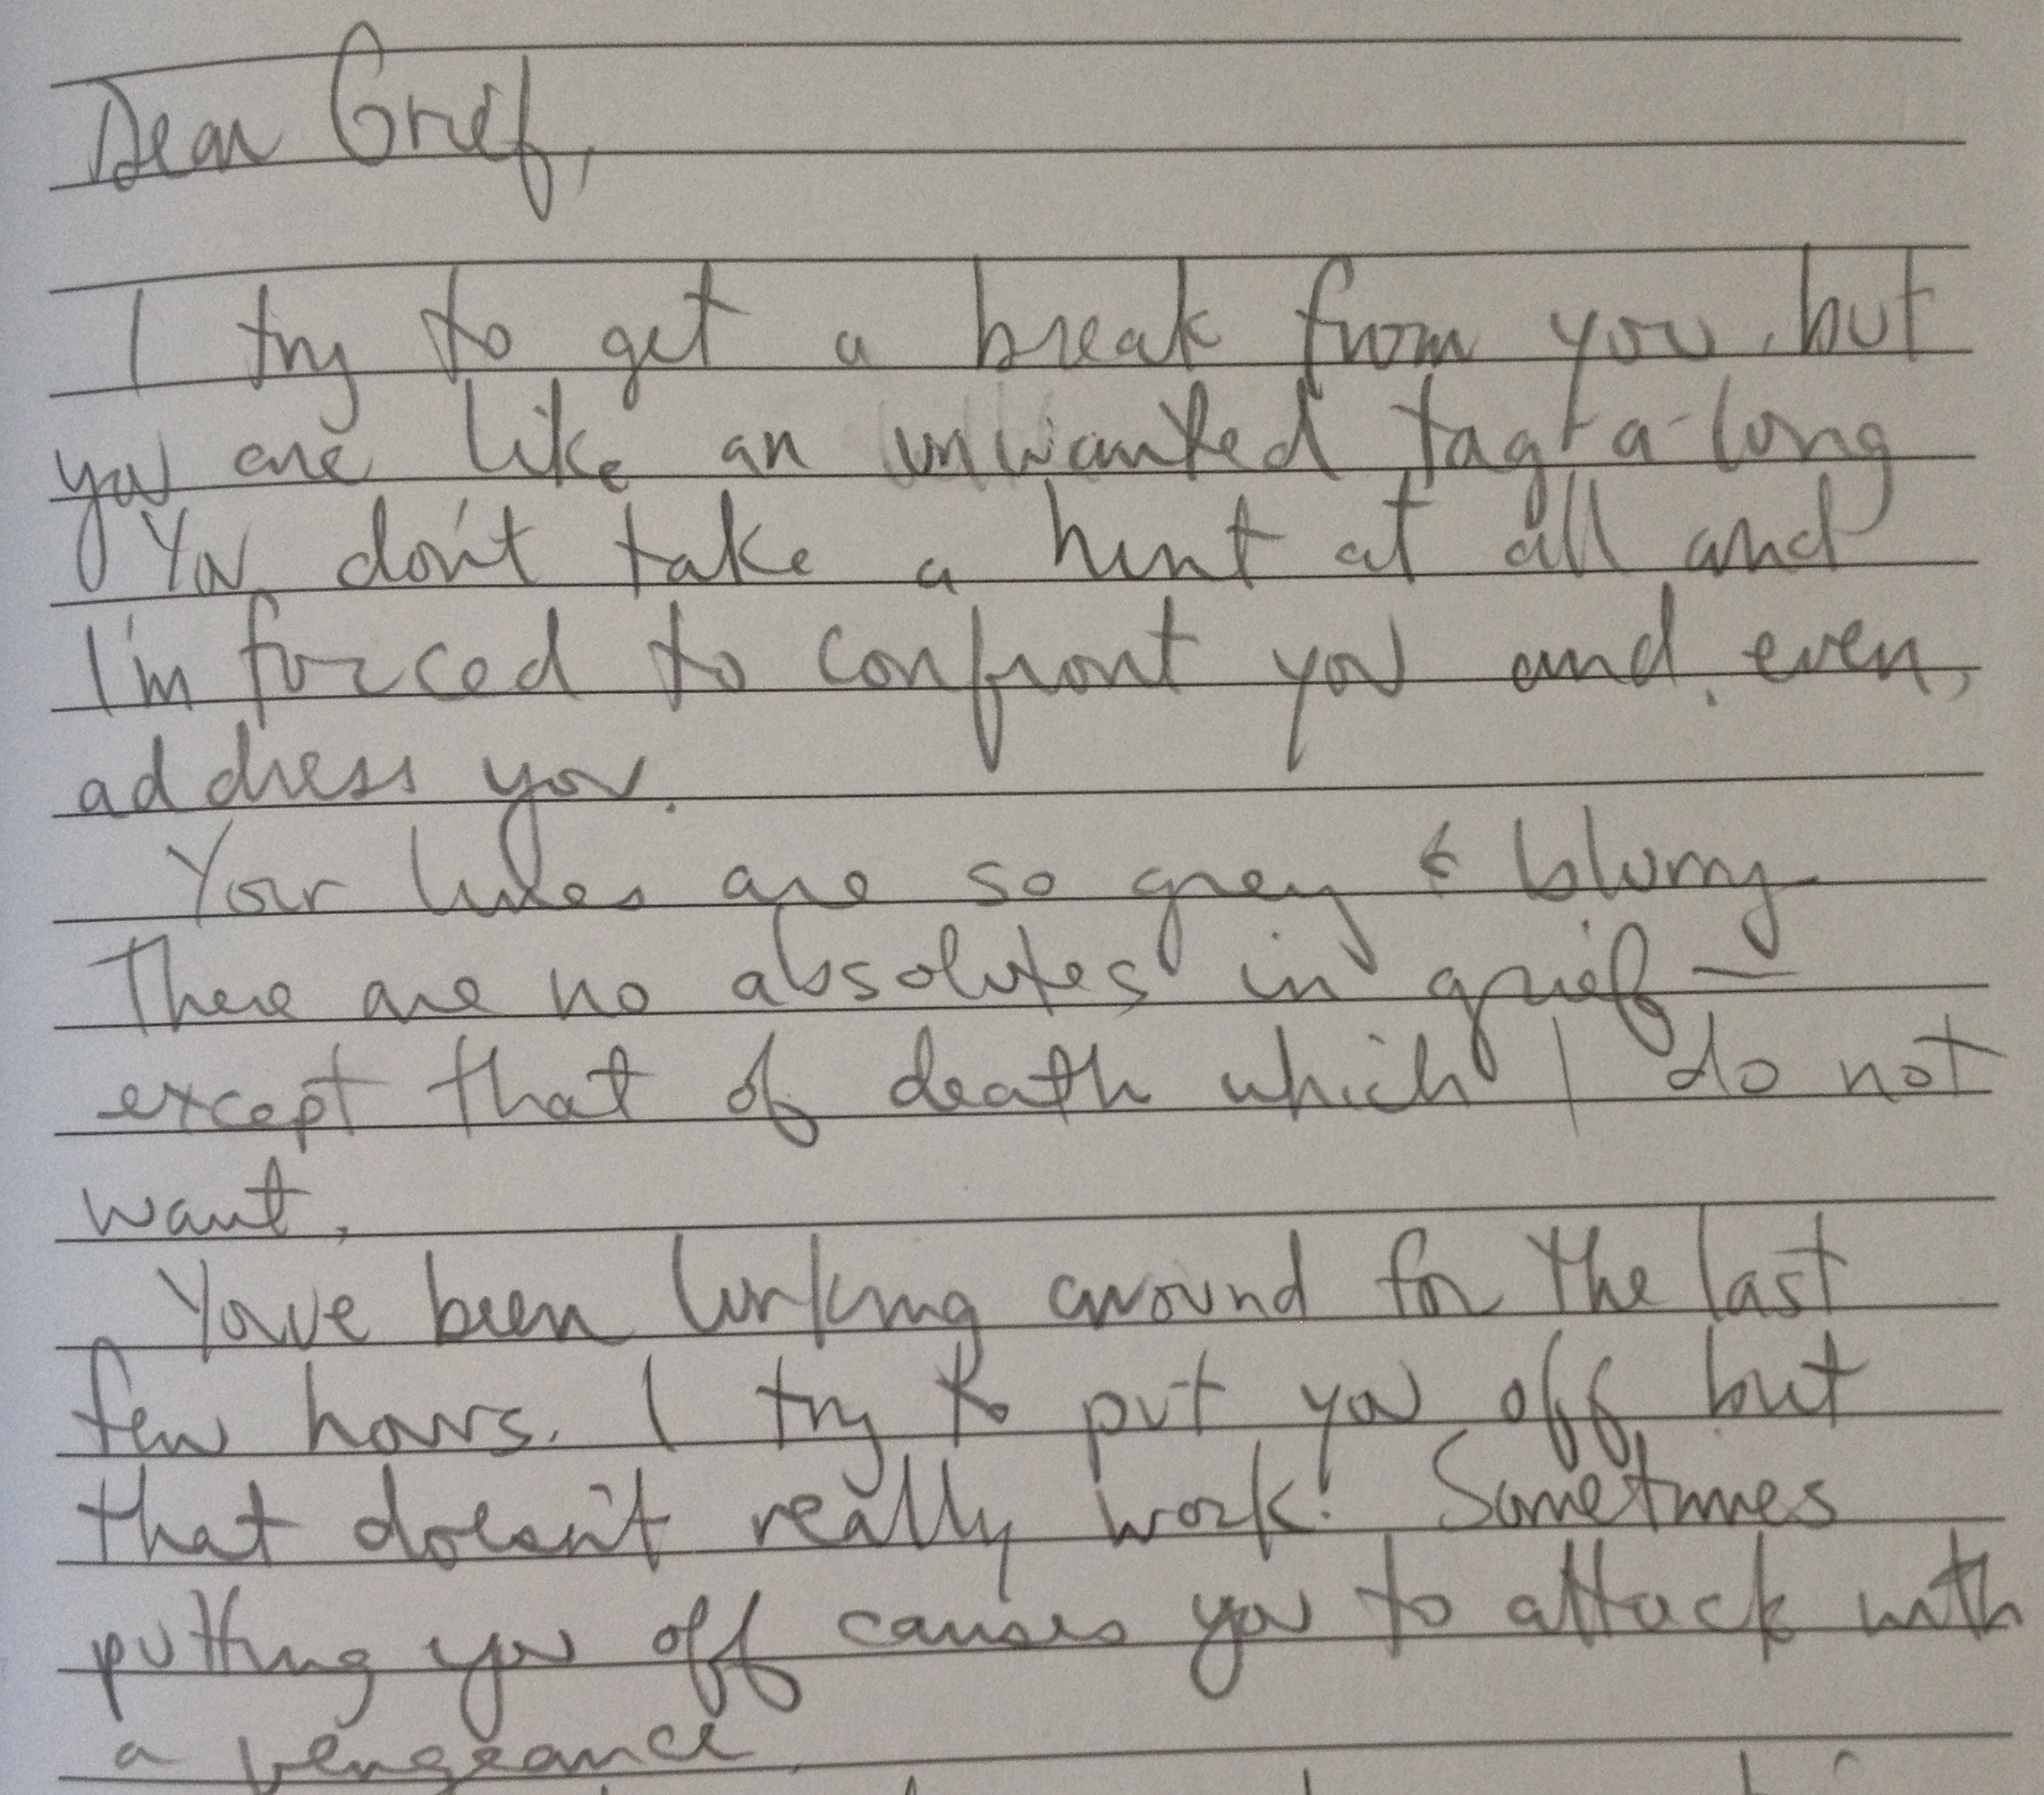 Dear Grief,
I try to get a break from you, but
you are like an unwanted tag-a-long
You don't take a hint at all and
I'm forced to confront you and, even,
address you.
Your lines are so grey & blurry
There are no absolutes in grief —
except that of death which I do not
want.
You've been lurking around for the last
few hours. I try to put you off but
that doesn't really work! Sometimes
putting you off causes you to attack with
a vengeance.